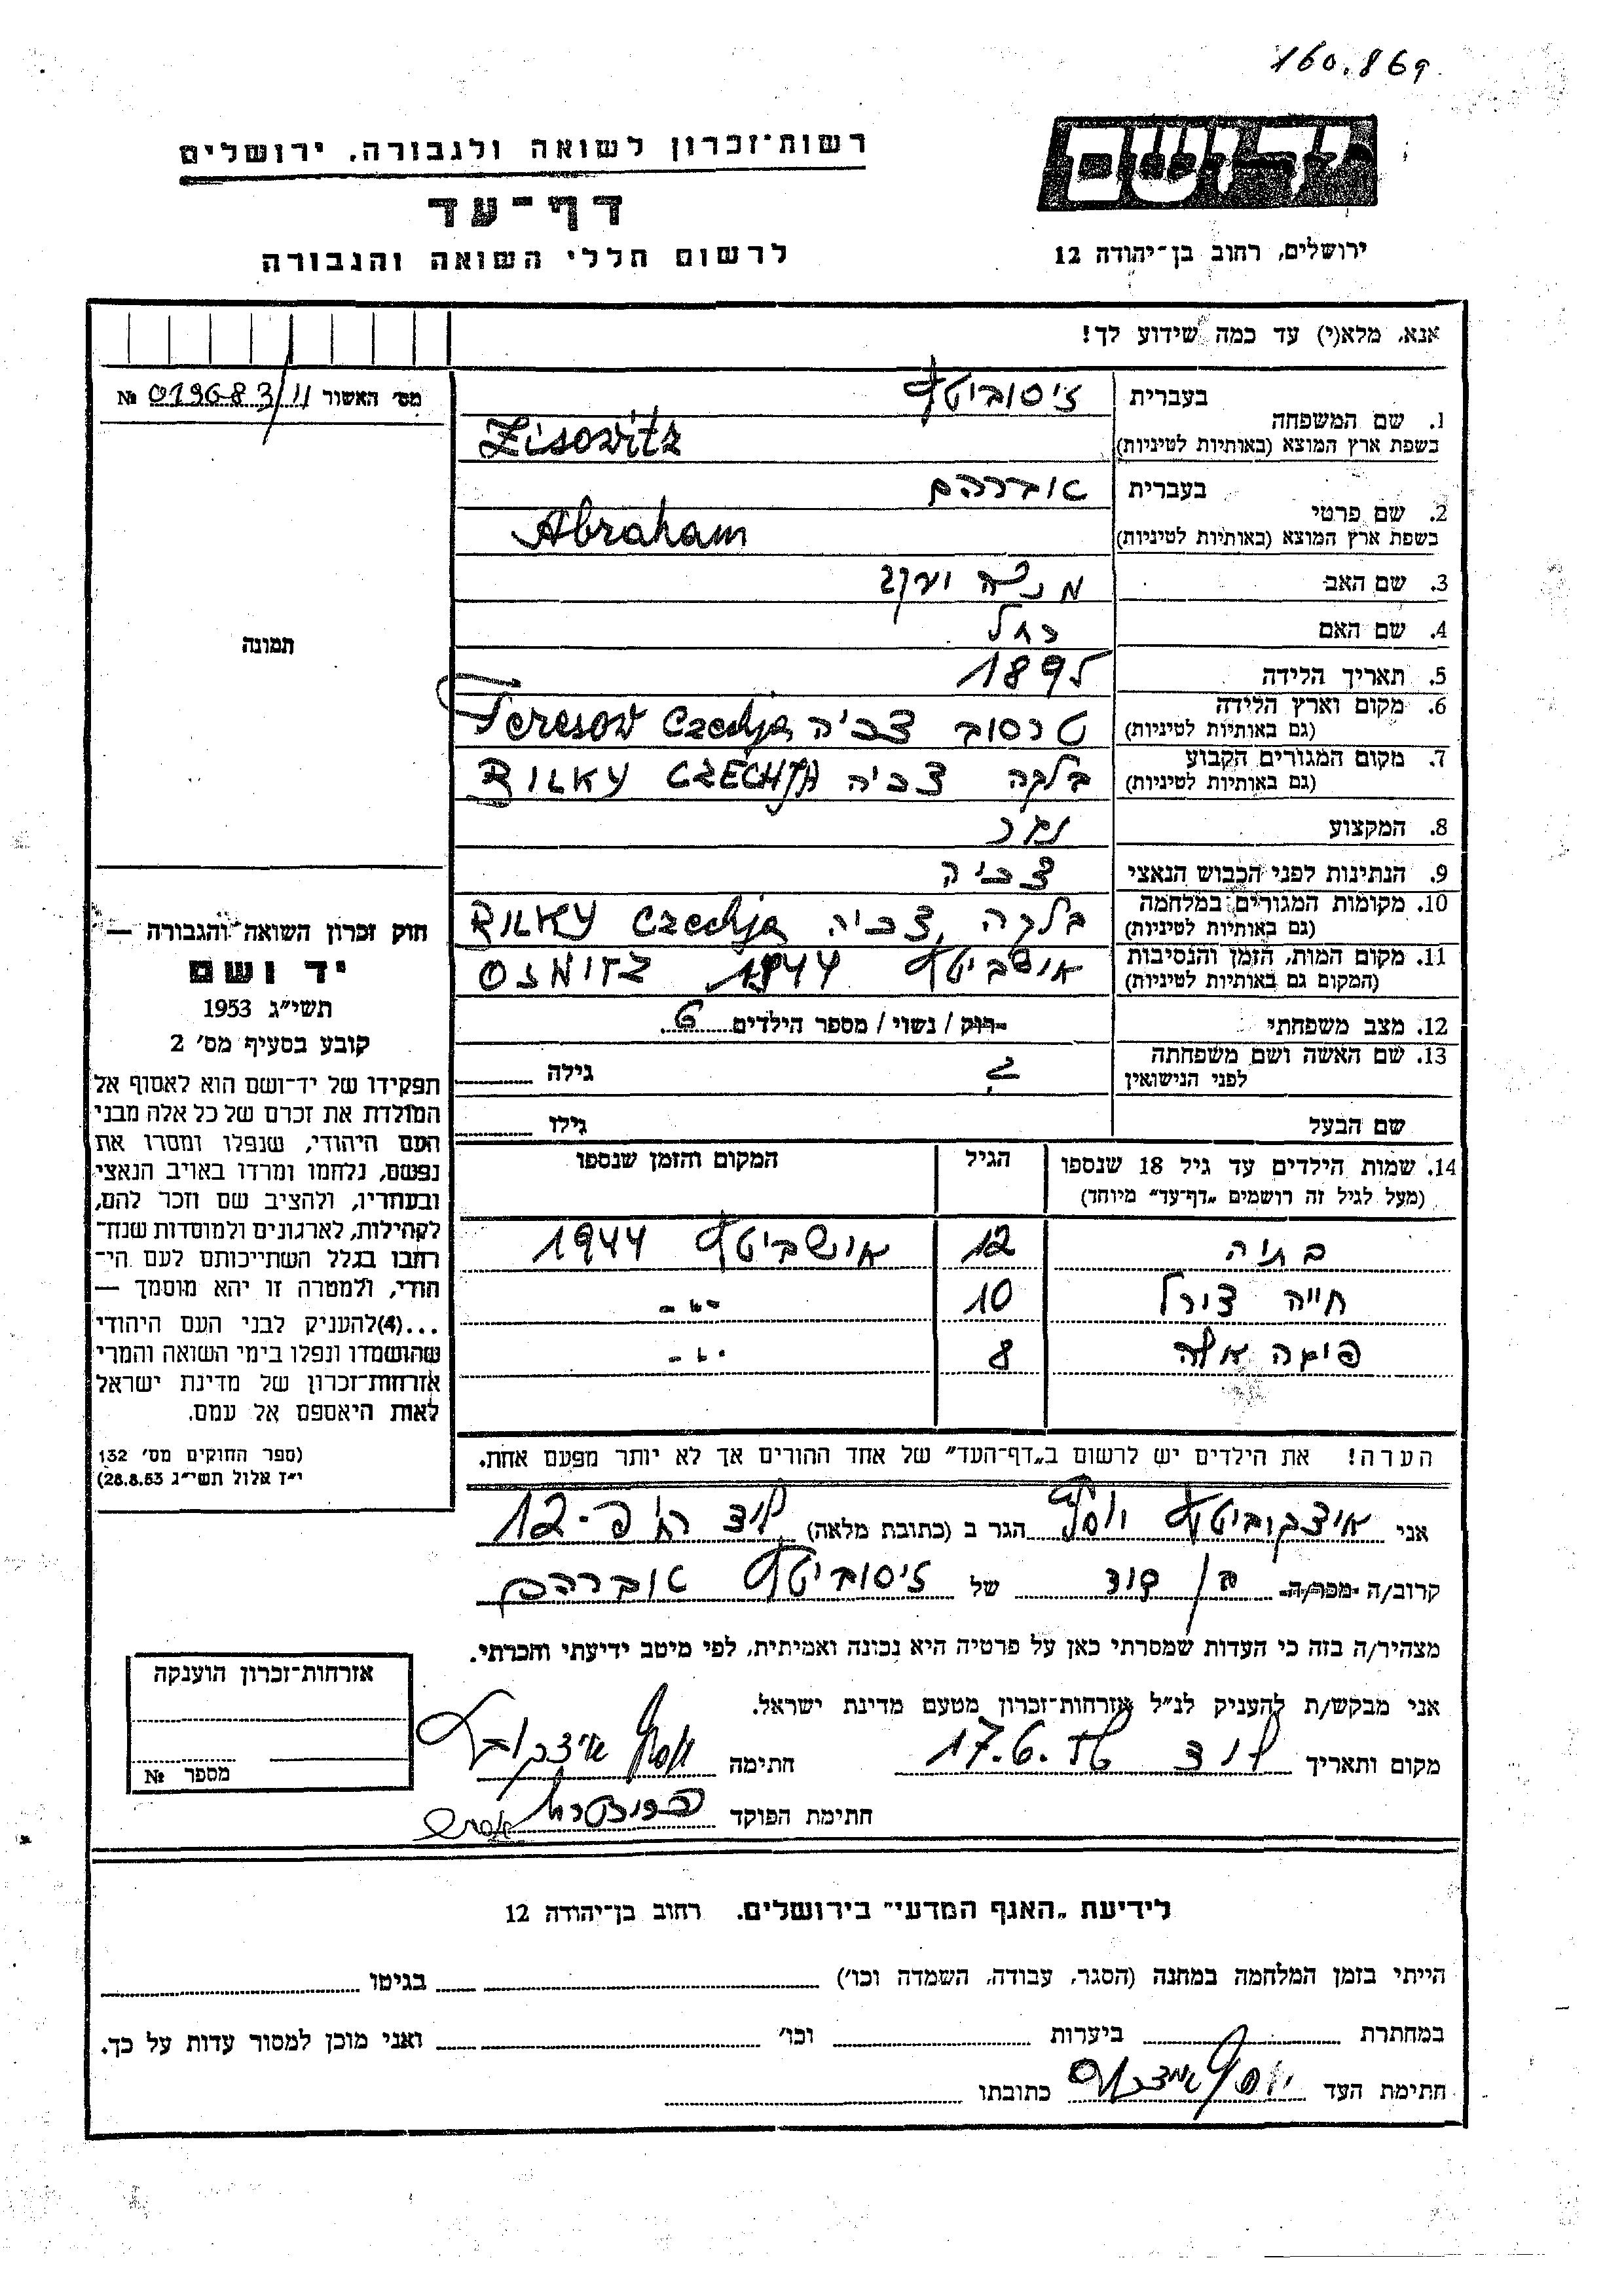 160.869
רשות-זכרון לשואה ולגבורה, ירושלים
יד ושם
דף-עד
לרשום חללי השואה והגבורה
ירושלים, רחוב בן-יהודה 12
אנא, מלא(י) עד כמה שידוע לך!
מס׳ האשור 019683/11 №
1. שם המשפחה
בעברית זיסוביטש
בשפת ארץ המוצא (באותיות לטיניות) Zisovitz
2. שם פרטי
בעברית אברהם
בשפת ארץ המוצא (באותיות לטיניות) Abraham
3. שם האב מנשה יעקב
4. שם האם רחל
5. תאריך הלידה 1895
6. מקום וארץ הלידה (גם באותיות לטיניות) טרסוב צכיה Teresov Czechja
7. מקום המגורים הקבוע (גם באותיות לטיניות) בלקה צכיה BILKY CZECHJA
8. המקצוע נגר
9. הנתינות לפני הכבוש הנאצי צכיה
10. מקומות המגורים במלחמה (גם באותיות לטיניות) בלקה, צכיה BILKY Czechja
11. מקום המות, הזמן והנסיבות (המקום גם באותיות לטיניות) אושביטץ 1944
12. מצב משפחתי רוק / נשוי / מספר הילדים 6
13. שם האשה ושם משפחתה לפני הנישואין ? גילה
שם הבעל גילו
תמונה
חוק זכרון השואה והגבורה —
יד ושם
תשי״ג 1953
קובע בסעיף מס׳ 2
תפקידו של יד-ושם הוא לאסוף אל
המולדת את זכרם של כל אלה מבני
העם היהודי, שנפלו ומסרו את
נפשם, נלחמו ומרדו באויב הנאצי
ובעוזריו, ולהציב שם וזכר להם,
לקהילות, לארגונים ולמוסדות שנח־
רבו בגלל השתייכותם לעם הי־
הודי, ולמטרה זו יהא מוסמך —
...(4) להעניק לבני העם היהודי
שהושמדו ונפלו בימי השואה והמרי
אזרחות-זכרון של מדינת ישראל
לאות היאספם אל עמם.
(ספר החוקים מס׳ 132
י״ז אלול תשי״ג 28.8.53)
14. שמות הילדים עד גיל 18 שנספו הגיל המקום והזמן שנספו
(מעל לגיל זה רושמים „דף-עד״ מיוחד)
בתיה 12 אושביטץ 1944
חייה צירל 10 -״-
פיגה אלה 8 -״-
הערה! את הילדים יש לרשום ב„דף-העד״ של אחד ההורים אך לא יותר מפעם אחת.
אני איצקוביטש יוסף הגר ב (כתובת מלאה) לוד 12-
קרוב/ה מכר/ה בן דוד של זיסוביטש אברהם
מצהיר/ה בזה כי העדות שמסרתי כאן על פרטיה היא נכונה ואמיתית, לפי מיטב ידיעתי והכרתי.
אני מבקש/ת להעניק לנ״ל אזרחות-זכרון מטעם מדינת ישראל.
מקום ותאריך לוד 17.6. חתימה יוסף
חתימת הפוקד
אזרחות-זכרון הוענקה
מספר №
לידיעת „האגף המדעי״ בירושלים, רחוב בן-יהודה 12
הייתי בזמן המלחמה במחנה (הסגר, עבודה, השמדה וכו׳) בגיטו
במחתרת ביערות וכו׳ ואני מוכן למסור עדות על כך.
חתימת העד יוסף כתובתו